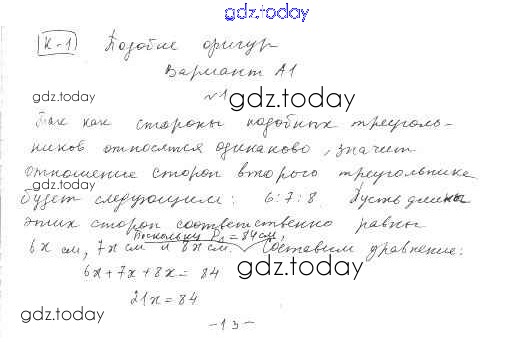 gdz.today
К-1 Подобие фигур
Вариант А1
gdz.today
№1
gdz.today
Так как стороны подобных треуголь-
ников относятся одинаково, значит
отношение сторон второго треугольника
gdz.today
будет следующим: 6:7:8. Пусть длины
этих сторон соответственно равны
поскольку P₁ = 84 см,
6x см, 7x см и 8x см. Составим уравнение:
gdz.today
6x + 7x + 8x = 84
gdz.today
21x = 84
gdz.today
- 13 -